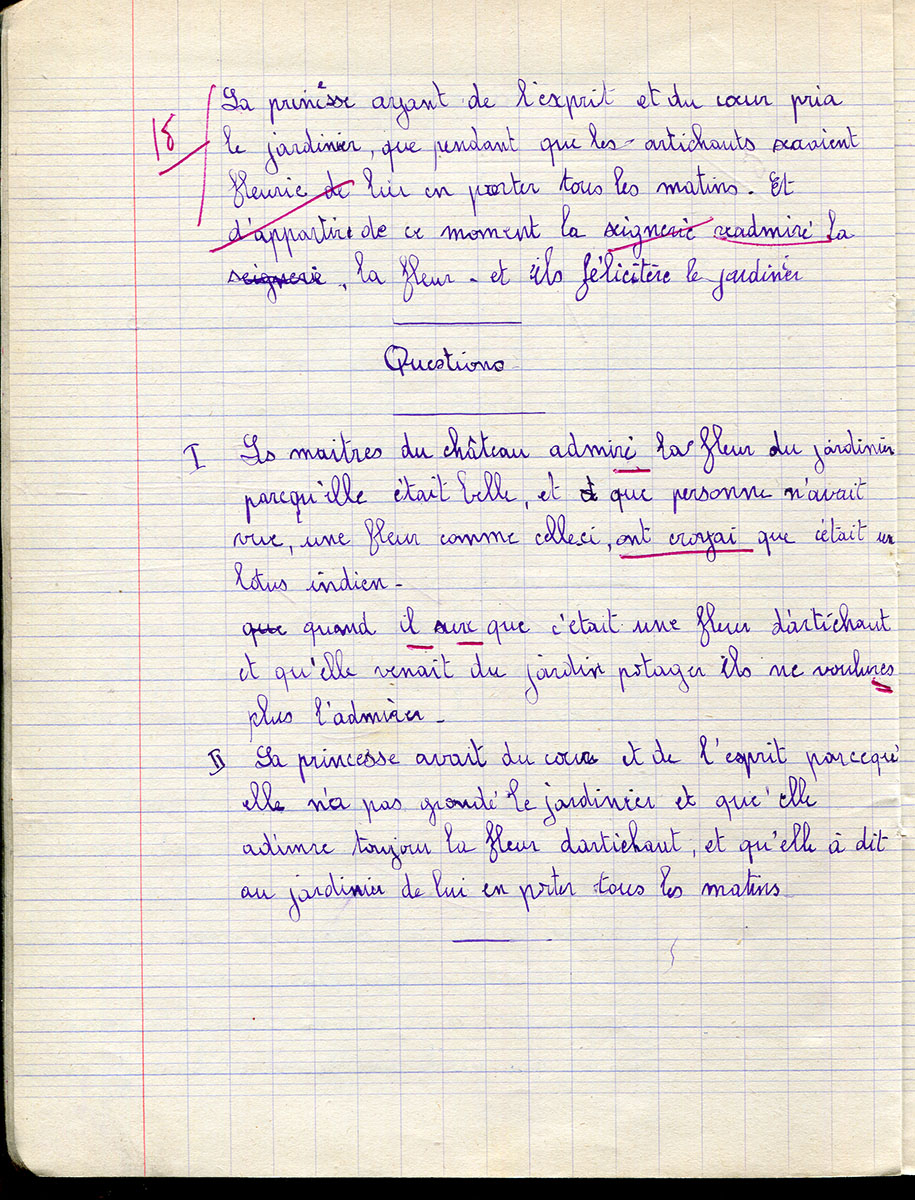 La princèsse ayant de l'exprit et du cœur pria
18
le jardinier, que pendant que les artichauts seraient
fleurie de lui en porter tous les matins. Et
d'appartire de ce moment la seignerie readmiré la
seignerie, la fleur - et ils félicitère le jardinier
Questions
I Ls maitres du château admiré la fleur du jardinier
parcqu'ille était belle, et et que personne n'avait
vue, une fleur comme celleci, ont croyai que c'était un
lotus indien -
que quand il sure que c'était une fleur d'artichaut
et qu'elle venait du jardin potager ils ne voulures
plus l'admirer -
II La princesse avait du cœur et de l'esprit parceque
elle n'a pas grondé le jardinier et que'elle
adimre toujour la fleur dartichaut, et qu'elle à dit
au jardinier de lui en prter tous les matins